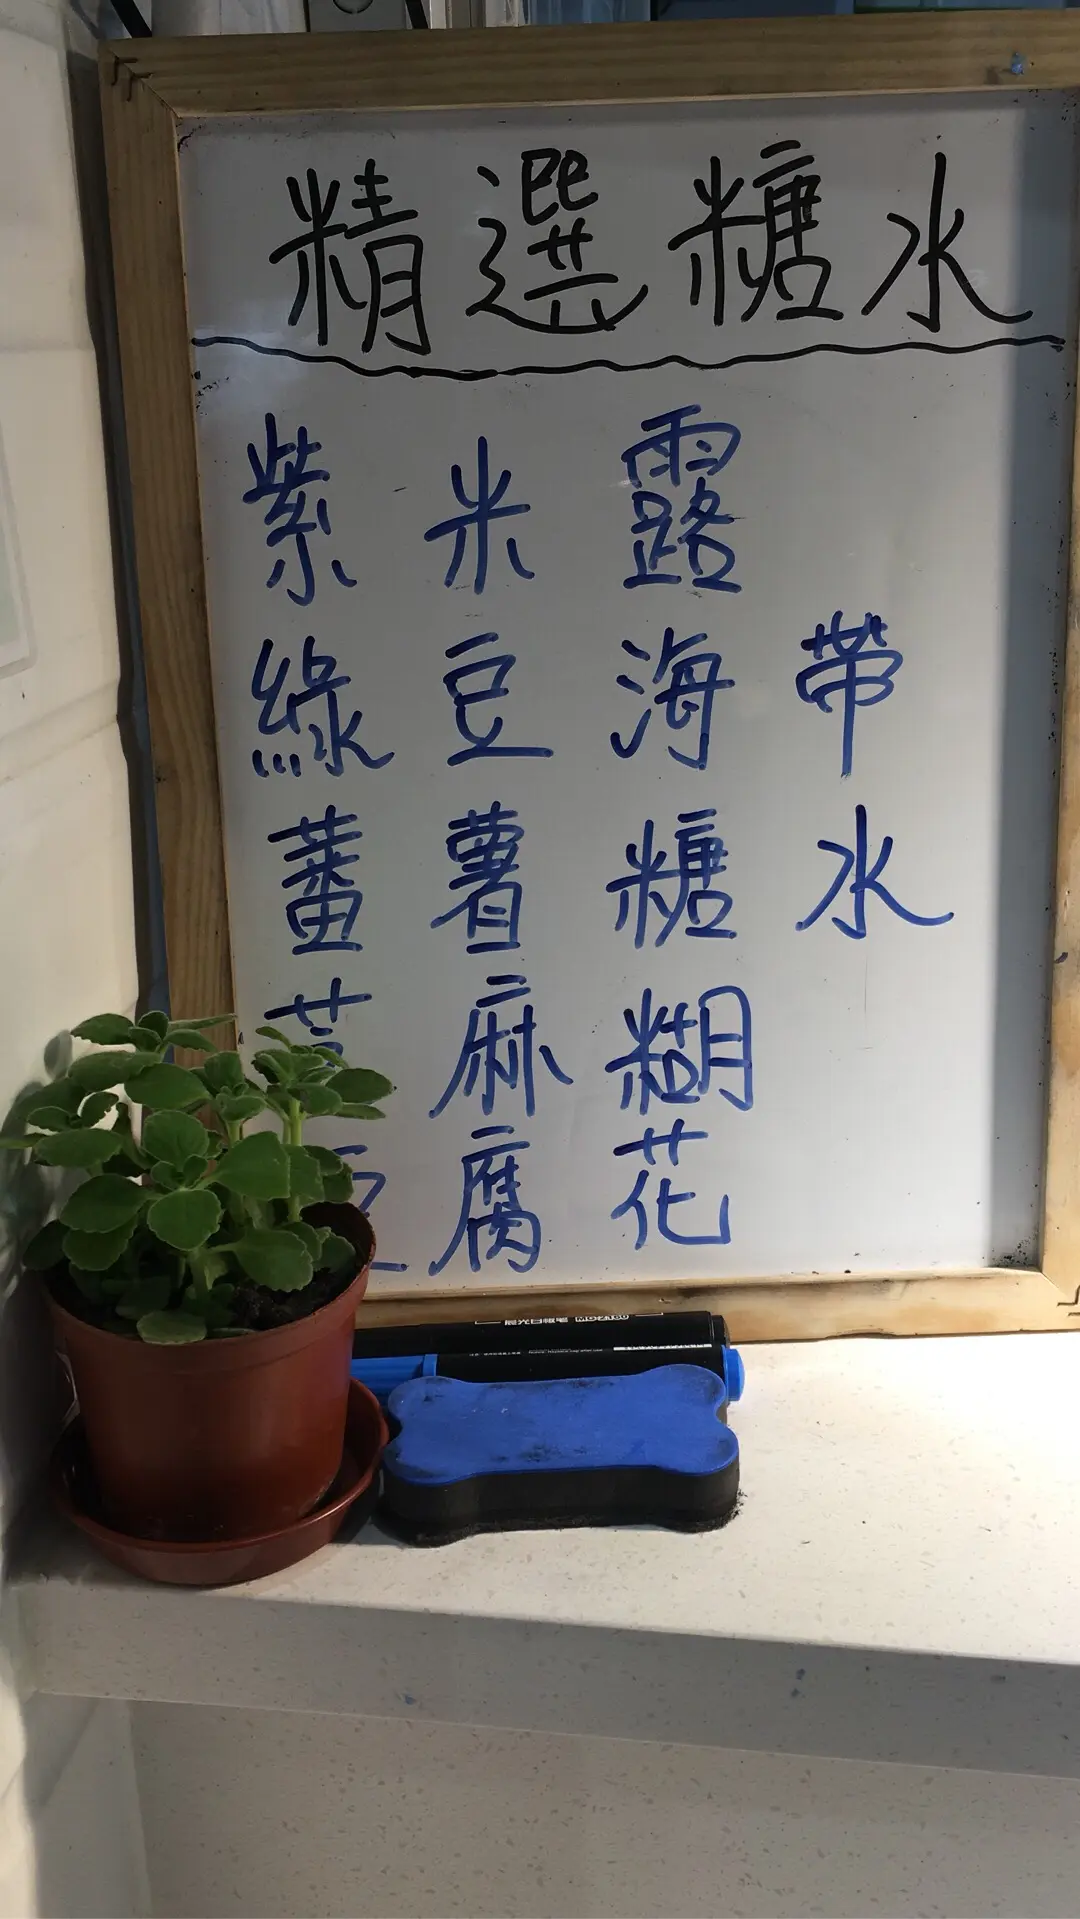 精選糖水
紫米露
綠豆海帶
蕃薯糖水
麻糊
豆腐花
晨光白板笔 MG2160